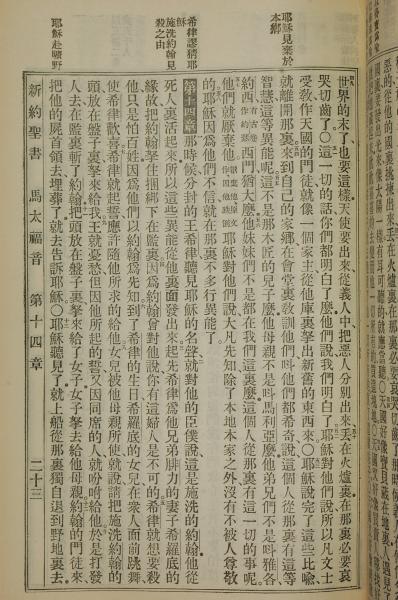 耶穌見棄於
本鄉
世界的末了也要這樣天使要出來從義人中把惡人分別出來丟在火爐裏在那裏必要哀
哭切齒了○這一切的話你們都明白了麼他們說我們明白了耶穌對他們說所以凡文士
受教作天國的門徒就像一個家主從他庫裏拏出新舊的東西來○耶穌說完了這些比喻
就離開那裏來到自己的家鄉在會堂裏教訓他們叫他們都希奇說這個人從那裏有這等
智慧這等異能呢這不是那木匠的兒子麼他母親不是呌馬利亞麼他弟兄們不是呌雅各
約西有古卷作約瑟西門猶大麼他妹妹們不是都在我們這裏麼這個人從那裏有這一切的事呢
他們就厭棄他耶穌對他們說大凡先知除了本地本家之外沒有不被人尊敬
的耶穌因爲他們不信就在那裏不多行異能了
希律謬猜耶
穌
施洗約翰見
殺之由
第十四章那時候分封的王希律聽見耶穌的名聲就對他的臣僕說這是施洗的約翰他從
死人裏活起來所以這些異能從他裏面發出來起先希律爲他兄弟腓力的妻子希羅底的
緣故把約翰拏住捆綁下在監裏因爲約翰曾對他說你有這婦人是不可的希律就想要殺
他只是怕百姓因爲他們以約翰爲先知到了希律的生日希羅底的女兒在衆人面前跳舞
使希律歡喜希律就起誓應許隨他所求的給他女兒被他母親所使就說請把施洗約翰的
頭放在盤子裏拏來給我王就憂愁但因他所起的誓又因同席的人就吩咐給他於是打發
人去在監裏斬了約翰把頭放在盤子裏拏來給了女子女子拏去給他母親約翰的門徒來
把他的屍首領去埋葬了就去告訴耶穌○耶穌聽見了就上船從那裏獨自退到野地裏去
耶穌赴曠野
新約聖書 馬太福音 第十四章 二十三